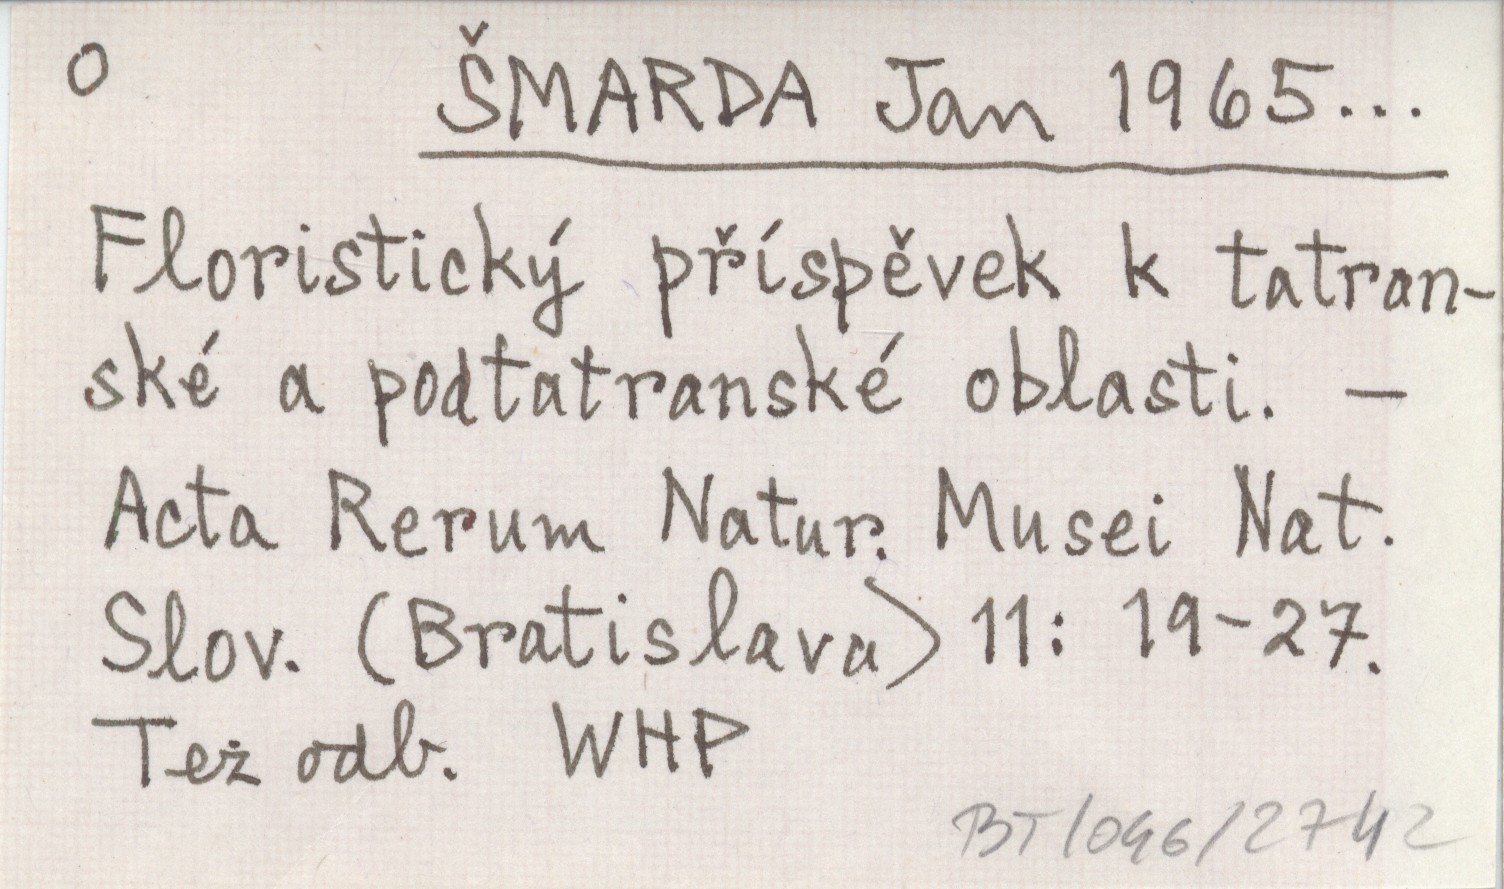 O ŠMARDA Jan 1965...
Floristický příspěvek k tatran-
ské a podtatranské oblasti. –
Acta Rerum Natur. Musei Nat.
Slov. (Bratislava) 11: 19-27.
Též odb. WHP
BT/046/2742